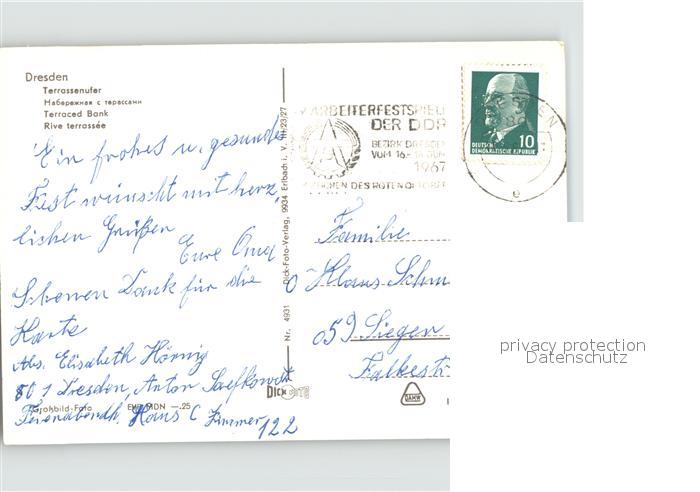 Dresden
Terrassenufer
Набережная с террасами
Terraced Bank
Rive terrassée
Ein frohes u. gesundes
Fest wünscht mit herz-
lichen Grüßen
Eure Oma
Schönen Dank für die
Karte
Abs. Elisabeth Hörnig
801 Dresden, Anton Saefkowstr
Feierabendh. Haus C Zimmer 122
Großbild-Foto
EVP MDN —.25
Nr. 4931 Dick-Foto-Verlag, 9934 Erlbach i. V. III/23/27
DICK FOTO
ARBEITERFESTSPIELE
DER DDR
BEZIRK DRESDEN
VOM 16.-18. JUNI
1967
ZEICHEN DES ROTEN OKTOBER
DEUTSCHE
DEMOKRATISCHE REPUBLIK
10
DRESDEN
e
Familie
Klaus Schm
059 Siegen
Falkestr
DAMW
privacy protection
Datenschutz